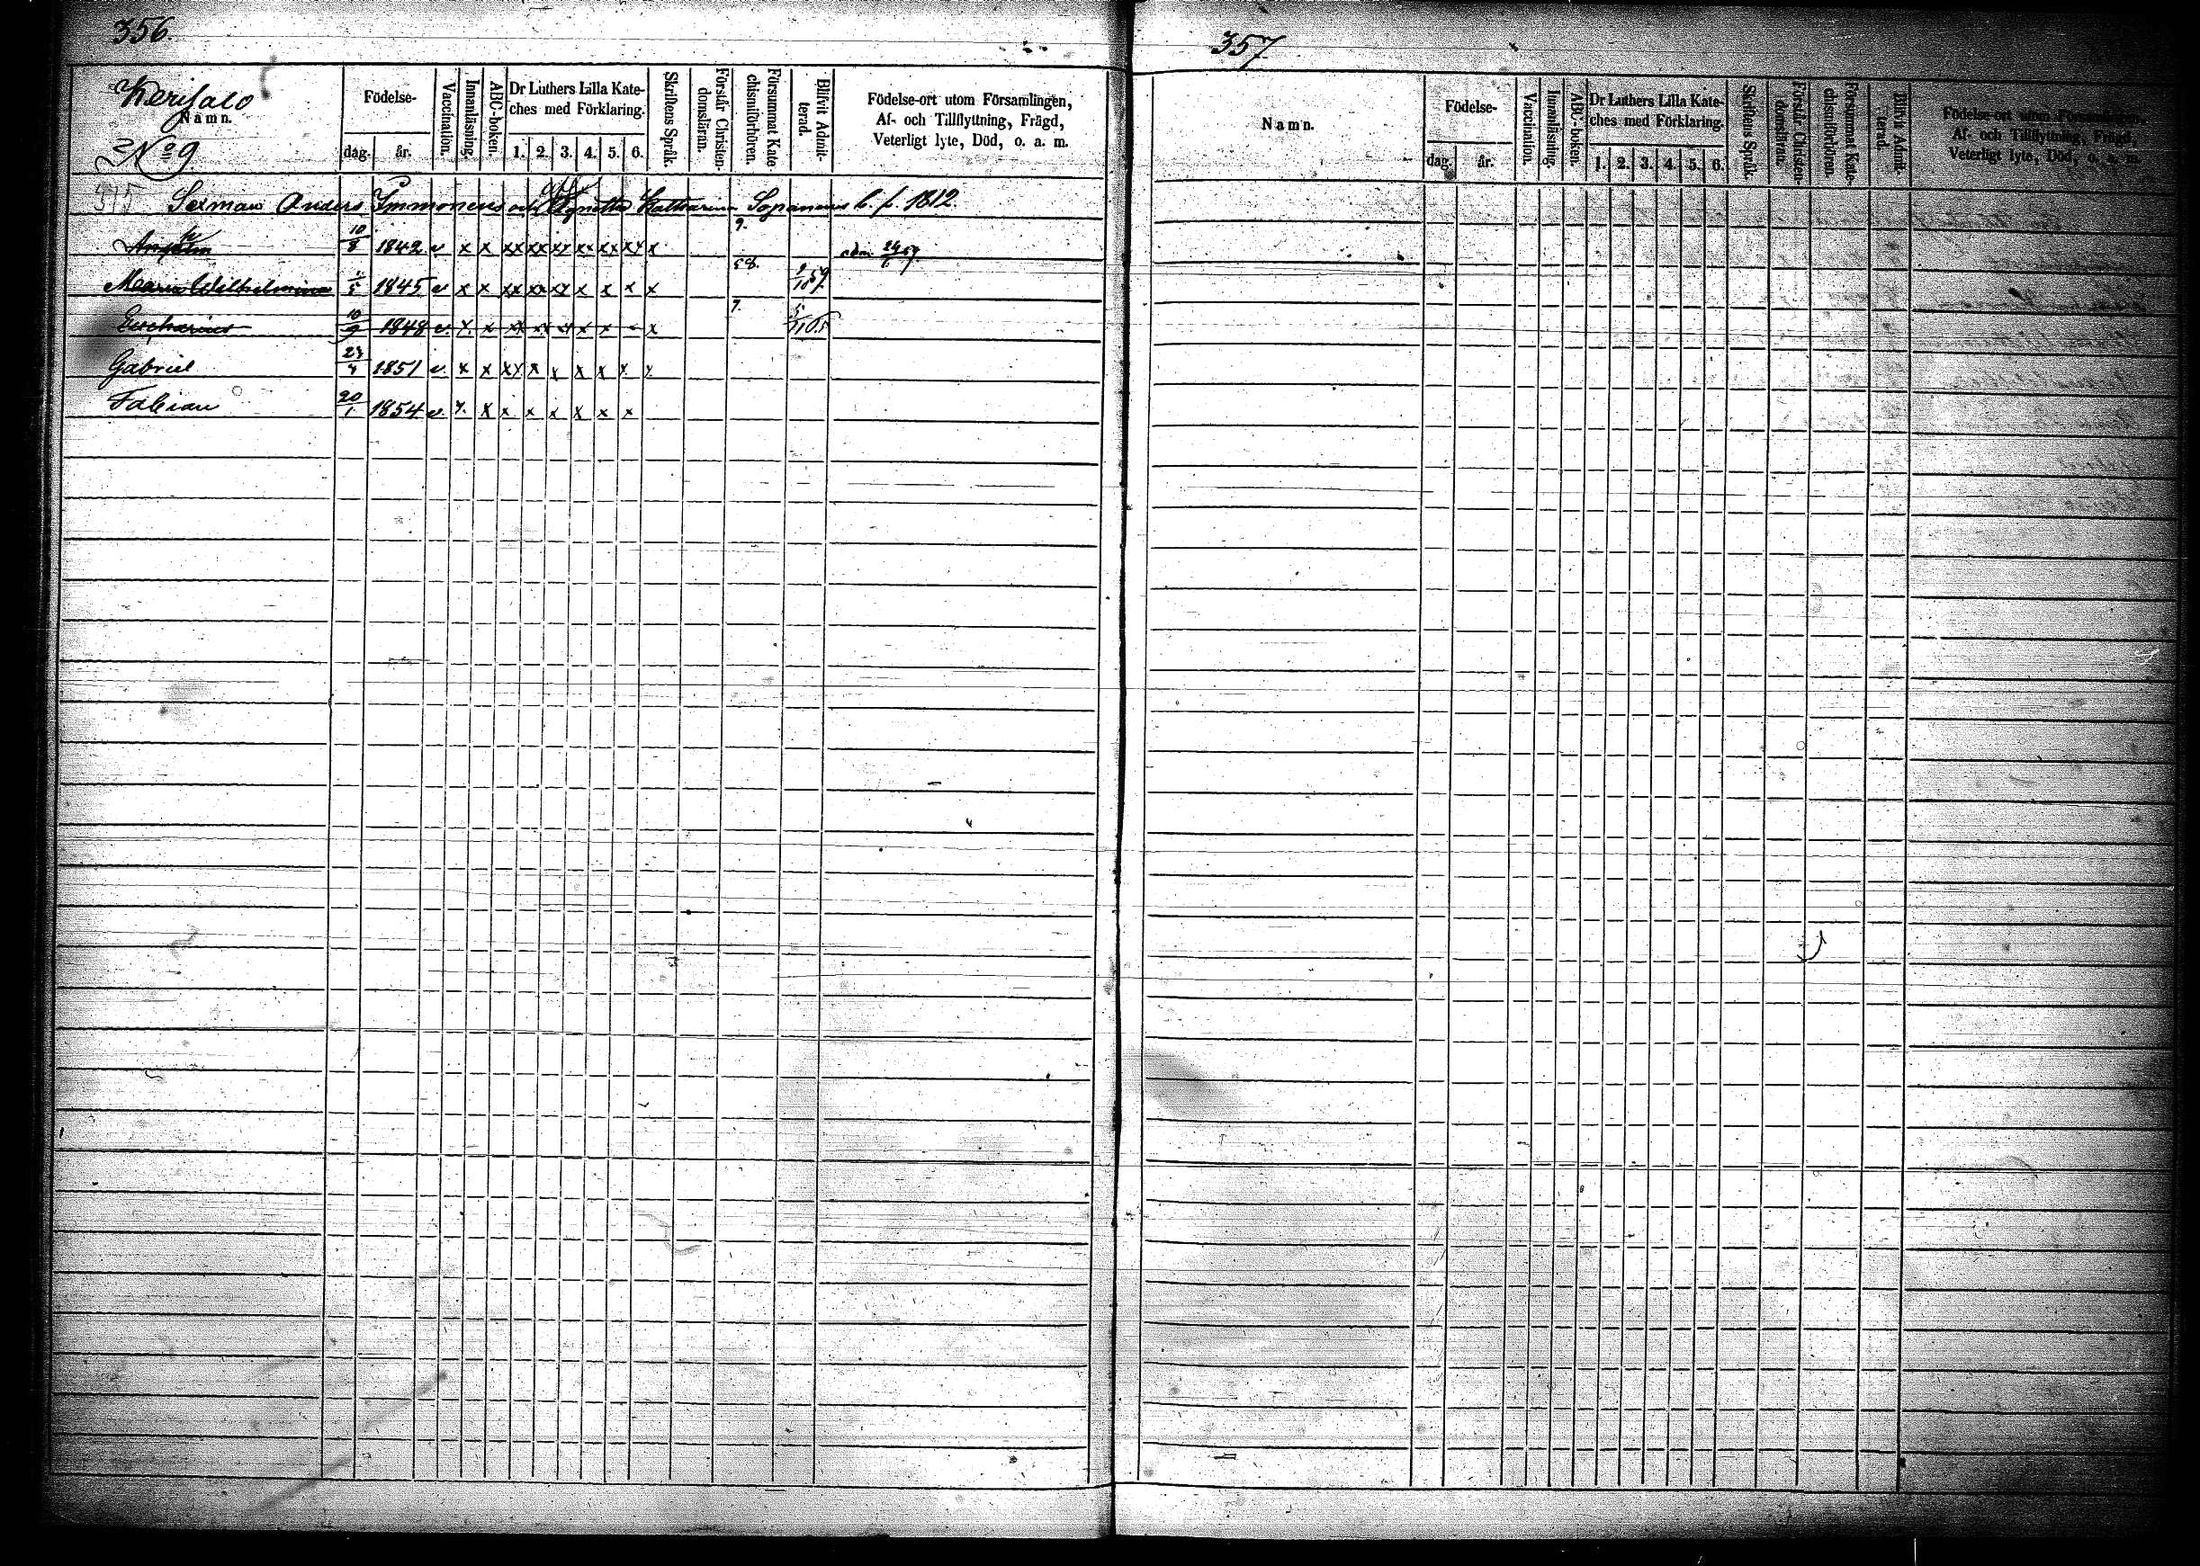 356.
Kerisalo
Namn.
No 9
Födelse-
dag.
år.
Vaccination.
Innanläsning.
ABC-boken.
Dr Luthers Lilla Kate-
ches med Förklaring.
1. 2. 3. 4. 5. 6.
Skriftens Språk.
Förstår Christen-
domsläran.
Försummat Kate-
chismiförhören.
Blifvit Admit-
terad.
Födelse-ort utom Församlingen,
Af- och Tillflyttning, Frägd,
Veterligt lyte, Död, o. a. m.
315 Anders Immonens och Agneta Katharina Sopanens b. f. 1812.
10/8 1842 v x x xx xx xx xx xx xx x 24/6 57
Maria Wilhelmina /5 1845 v x x xx xx xx x x x x 58.
Eucharius 10/9 1848 v x x xx xx xx x x - x 7.
Gabriel 23/4 1851 v x x xx x x x x x x
Fabian 20/1 1854 v x x x x x x x x
357
Namn.
Födelse-
dag.
år.
Vaccination.
Innanläsning.
ABC-boken.
Dr Luthers Lilla Kate-
ches med Förklaring.
1. 2. 3. 4. 5. 6.
Skriftens Språk.
Förstår Christen-
domsläran.
Försummat Kate-
chismiförhören.
Blifvit Admit-
terad.
Födelse-ort utom Församlingen,
Af- och Tillflyttning, Frägd,
Veterligt lyte, Död, o. a. m.